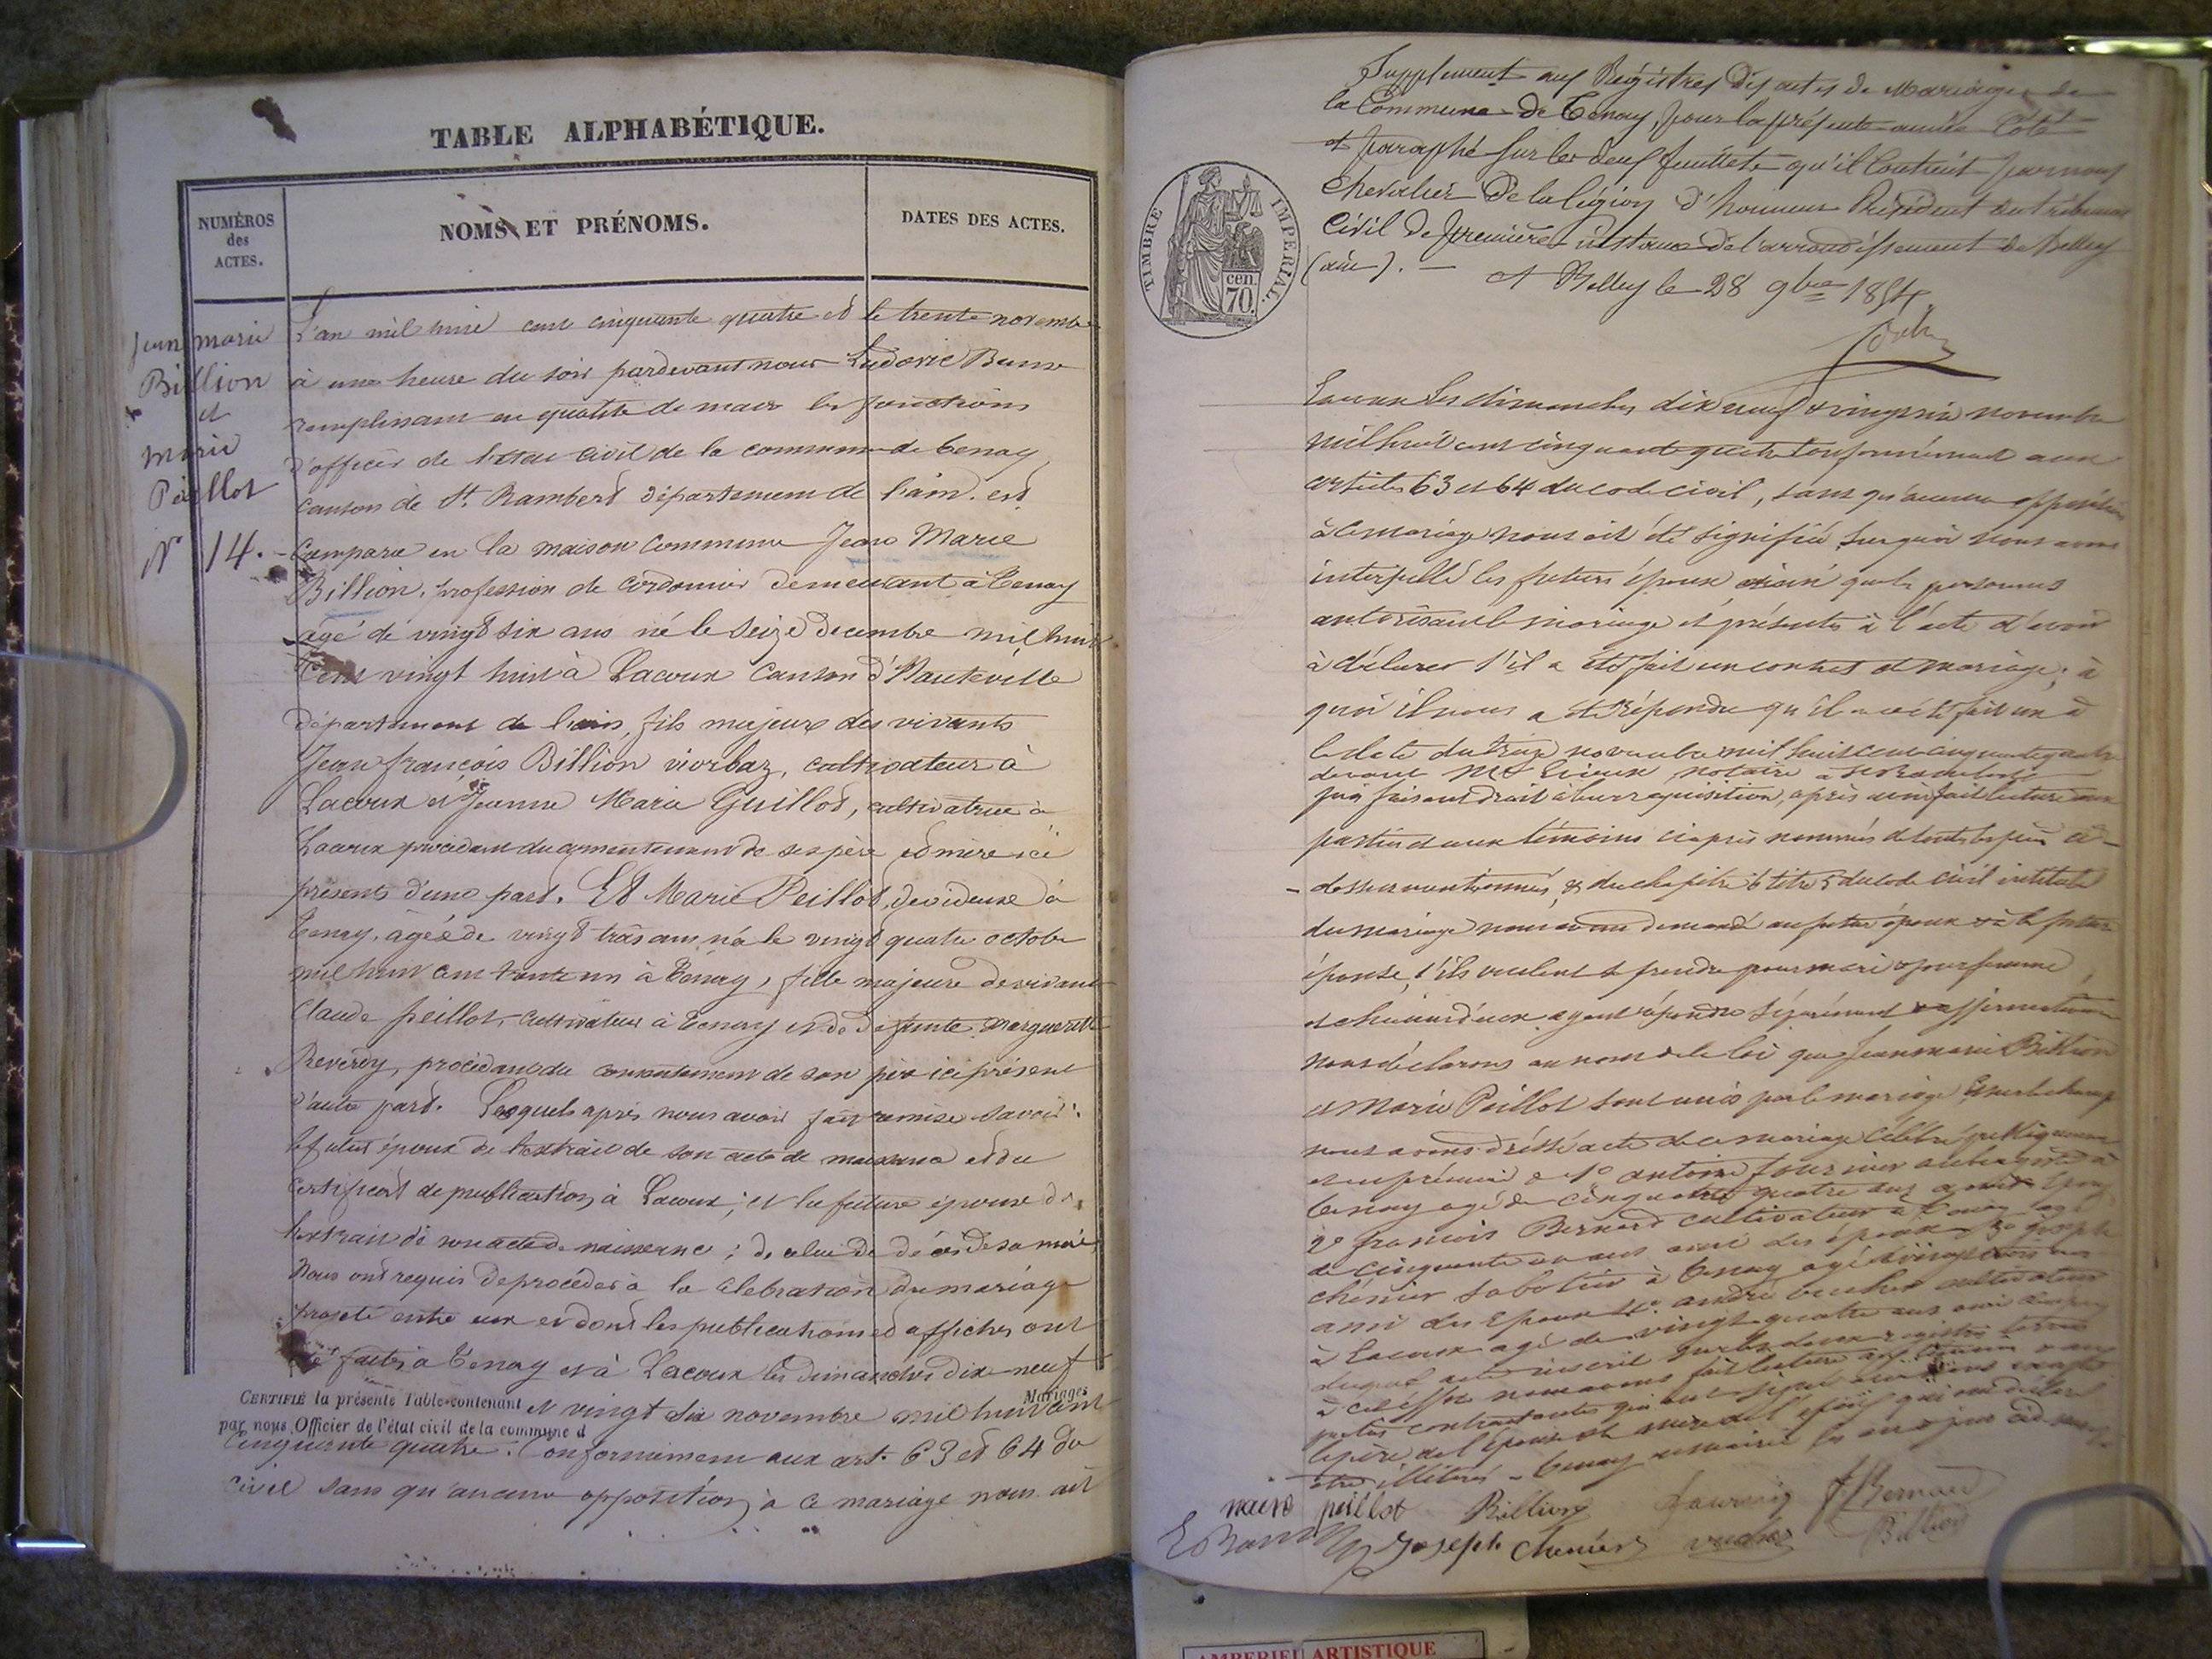 TABLE ALPHABÉTIQUE.
NUMÉROS
des
ACTES.
NOMS ET PRÉNOMS.
DATES DES ACTES.
Jean marie
Billion
et
Marie
Peillot
N° 14.
L'an mil huit cent cinquante quatre et le trente novembre
à une heure du soir pardevant nous Ludovic
remplissant en qualité de maire les fonctions
d'officier de l'état civil de la commune de Tenay
canton de St. Rambert département de l'ain. est
comparu en la maison commune Jean Marie
Billion, profession de cordonnier demeurant à Tenay
agé de vingt six ans né le seize decembre mil huit
cent vingt huit à Lacoux canton d'Hauteville
département de l'ain, fils majeur des vivants
Jean françois Billion viorbaz, cultivateur à
Lacoux et Jeanne Marie Guillot, cultivatrice à
Lacoux procédant du consentement de ses père et mère ici
présents d'une part. Et Marie Peillot, devideuse à
Tenay, agée de vingt trois ans née le vingt quatre octobre
mil huit cent trente un à Tenay, fille majeure de vivant
Claude peillot, cultivateur à Tenay et de defunte Marguerite
Reverdy, procédant du consentement de son père ici présent
d'autre part. Lesquels après nous avoir fait remise savoir:
le futur époux de l'extrait de son acte de naissance et du
certificat de publication à Lacoux; et la future épouse de
l'extrait de son acte de naissance; de celui de décès de sa mère,
Nous ont requis de procéder à la célébration du mariage
projeté entre eux et dont les publications et affiches ont
été faites à Tenay et à Lacoux les dimanches dix neuf
CERTIFIÉ la présente Table contenant
Mariages
et vingt six novembre mil huit cent
par nous Officier de l'état civil de la commune d
cinquante quatre. Conformement aux art. 63 et 64 du
civil sans qu'aucune opposition à ce mariage nous ait
Supplement aux Régistres des actes de Mariages de
la Commune de Tenay, pour la présente année Coté
et paraphé sur les deux feuillets qu'il Contient par nous
Chevalier de la Légion d'honneur Président du tribunal
Civil de première instance de l'arrondissement de Belley
(ain). —
TIMBRE IMPERIAL.
cen
70.
A Belley le 28 9bre 1854.
Lacoux les dimanches dix neuf & vingt six novembre
mil huit cent cinquante quatre conformément aux
articles 63 et 64 du code civil, sans qu'aucune opposition
à ce mariage nous ait été signifiée, surquoi nous avons
interpellé les futurs époux ainsi que les personnes
autorisant le mariage et présentes à l'acte d'avoir
à déclarer s'il a été fait un contrat de mariage; à
quoi il nous a été répondu qu'il en a été fait un à
la date du treize novembre mil huit cent cinquante quatre
devant Me notaire à St Rambert
puis faisant droit à leur requisition, après avoir fait lecture aux
parties et aux témoins ci après nommés de toutes les pièces ci-
- dessus mentionnées, & du chapitre 6 titre 5 du code civil intitulé
du mariage nous avons demandé au futur époux & à la future
épouse, s'ils veulent se prendre pour mari & pour femme,
et chacun d'eux ayant répondu séparément & affirmativement
nous déclarons au nom de la loi que Jean marie Billion
et Marie Peillot sont unis par le mariage & sur le champ
nous avons dréssé acte de ce mariage célébré publiquement
et en présence de 1° antoine fournier aubergiste à
tenay agé de cinquante quatre ans
2° françois Bernard cultivateur à Tenay agé
de cinquante ans ami des époux 3° joseph
chénier sabotier à tenay agé de vingt trois ans
ami des epoux 4° andré vucher cultivateur
à Lacoux agé de vingt quatre ans ami des époux
duquel acte inscrit sur les deux registres tenus
à cet effet nous avons fait lecture aux témoins & aux
parties contractantes qui ont signé avec nous excepté
le père de l'épouse et la mère de l'époux qui ont déclaré
etre illitérés - tenay en mairie les an & jour ci dessus
marie peillot Billion fournier f Bernard
Joseph Chenier vucher Billion
AMBERIEU ARTISTIQUE